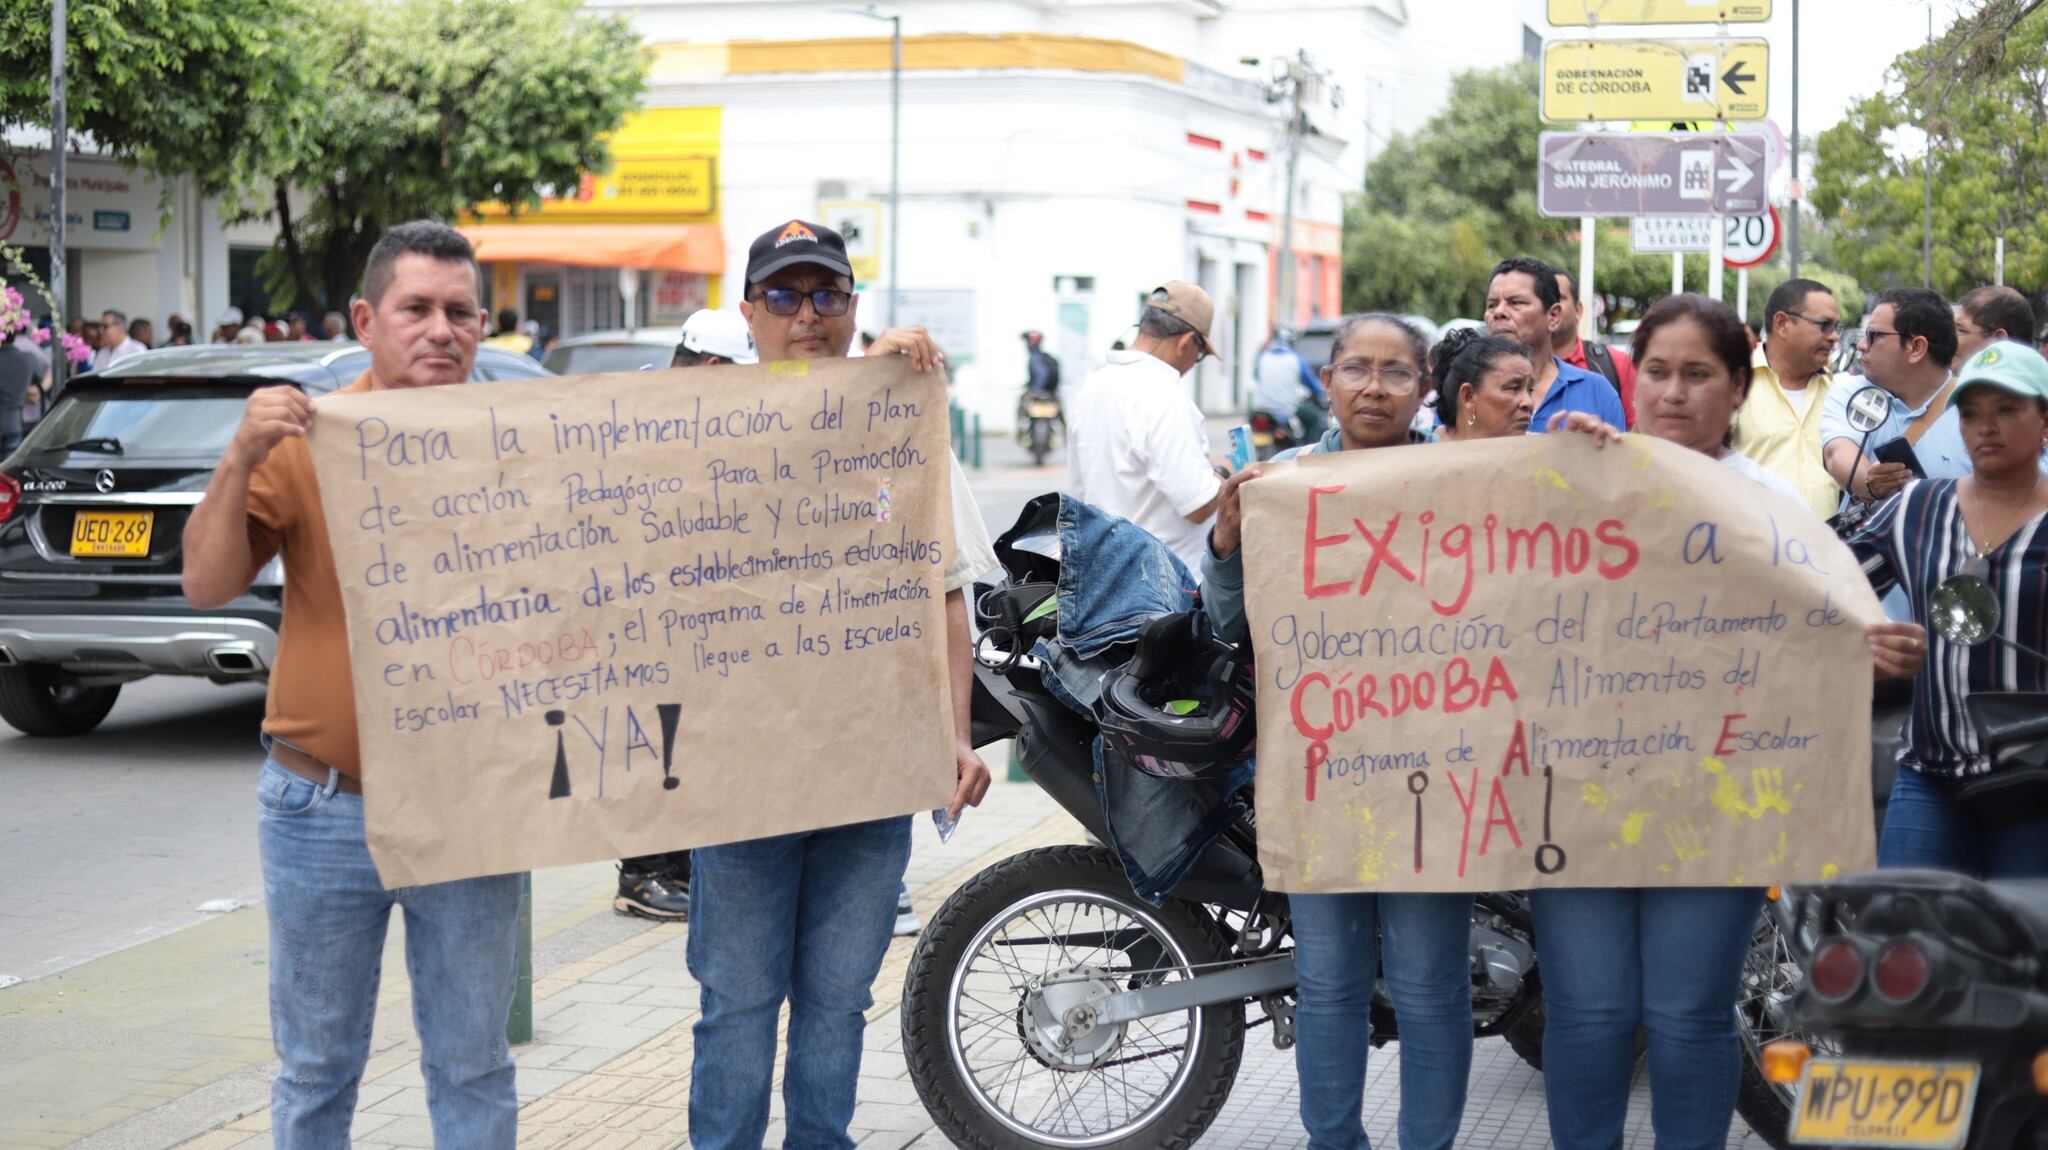 Para la implementación del plan
de acción Pedagógico Para la Promoción
de alimentación Saludable y Cultura
alimentaria de los establecimientos educativos
en CÓRDOBA; el programa de Alimentación
Escolar NECESITAMOS llegue a las Escuelas
¡YA!
EXIGIMOS a la
gobernación del departamento de
CÓRDOBA Alimentos del
Programa de Alimentación Escolar
¡YA!
GOBERNACIÓN
DE CÓRDOBA
CATEDRAL
SAN JERÓNIMO
ESPACIO
SEGURO
20
ADEMACOR
Impuestos Municipales
GLA 200
UEO·269
ENVIGADO
WPU·99D
COLOMBIA